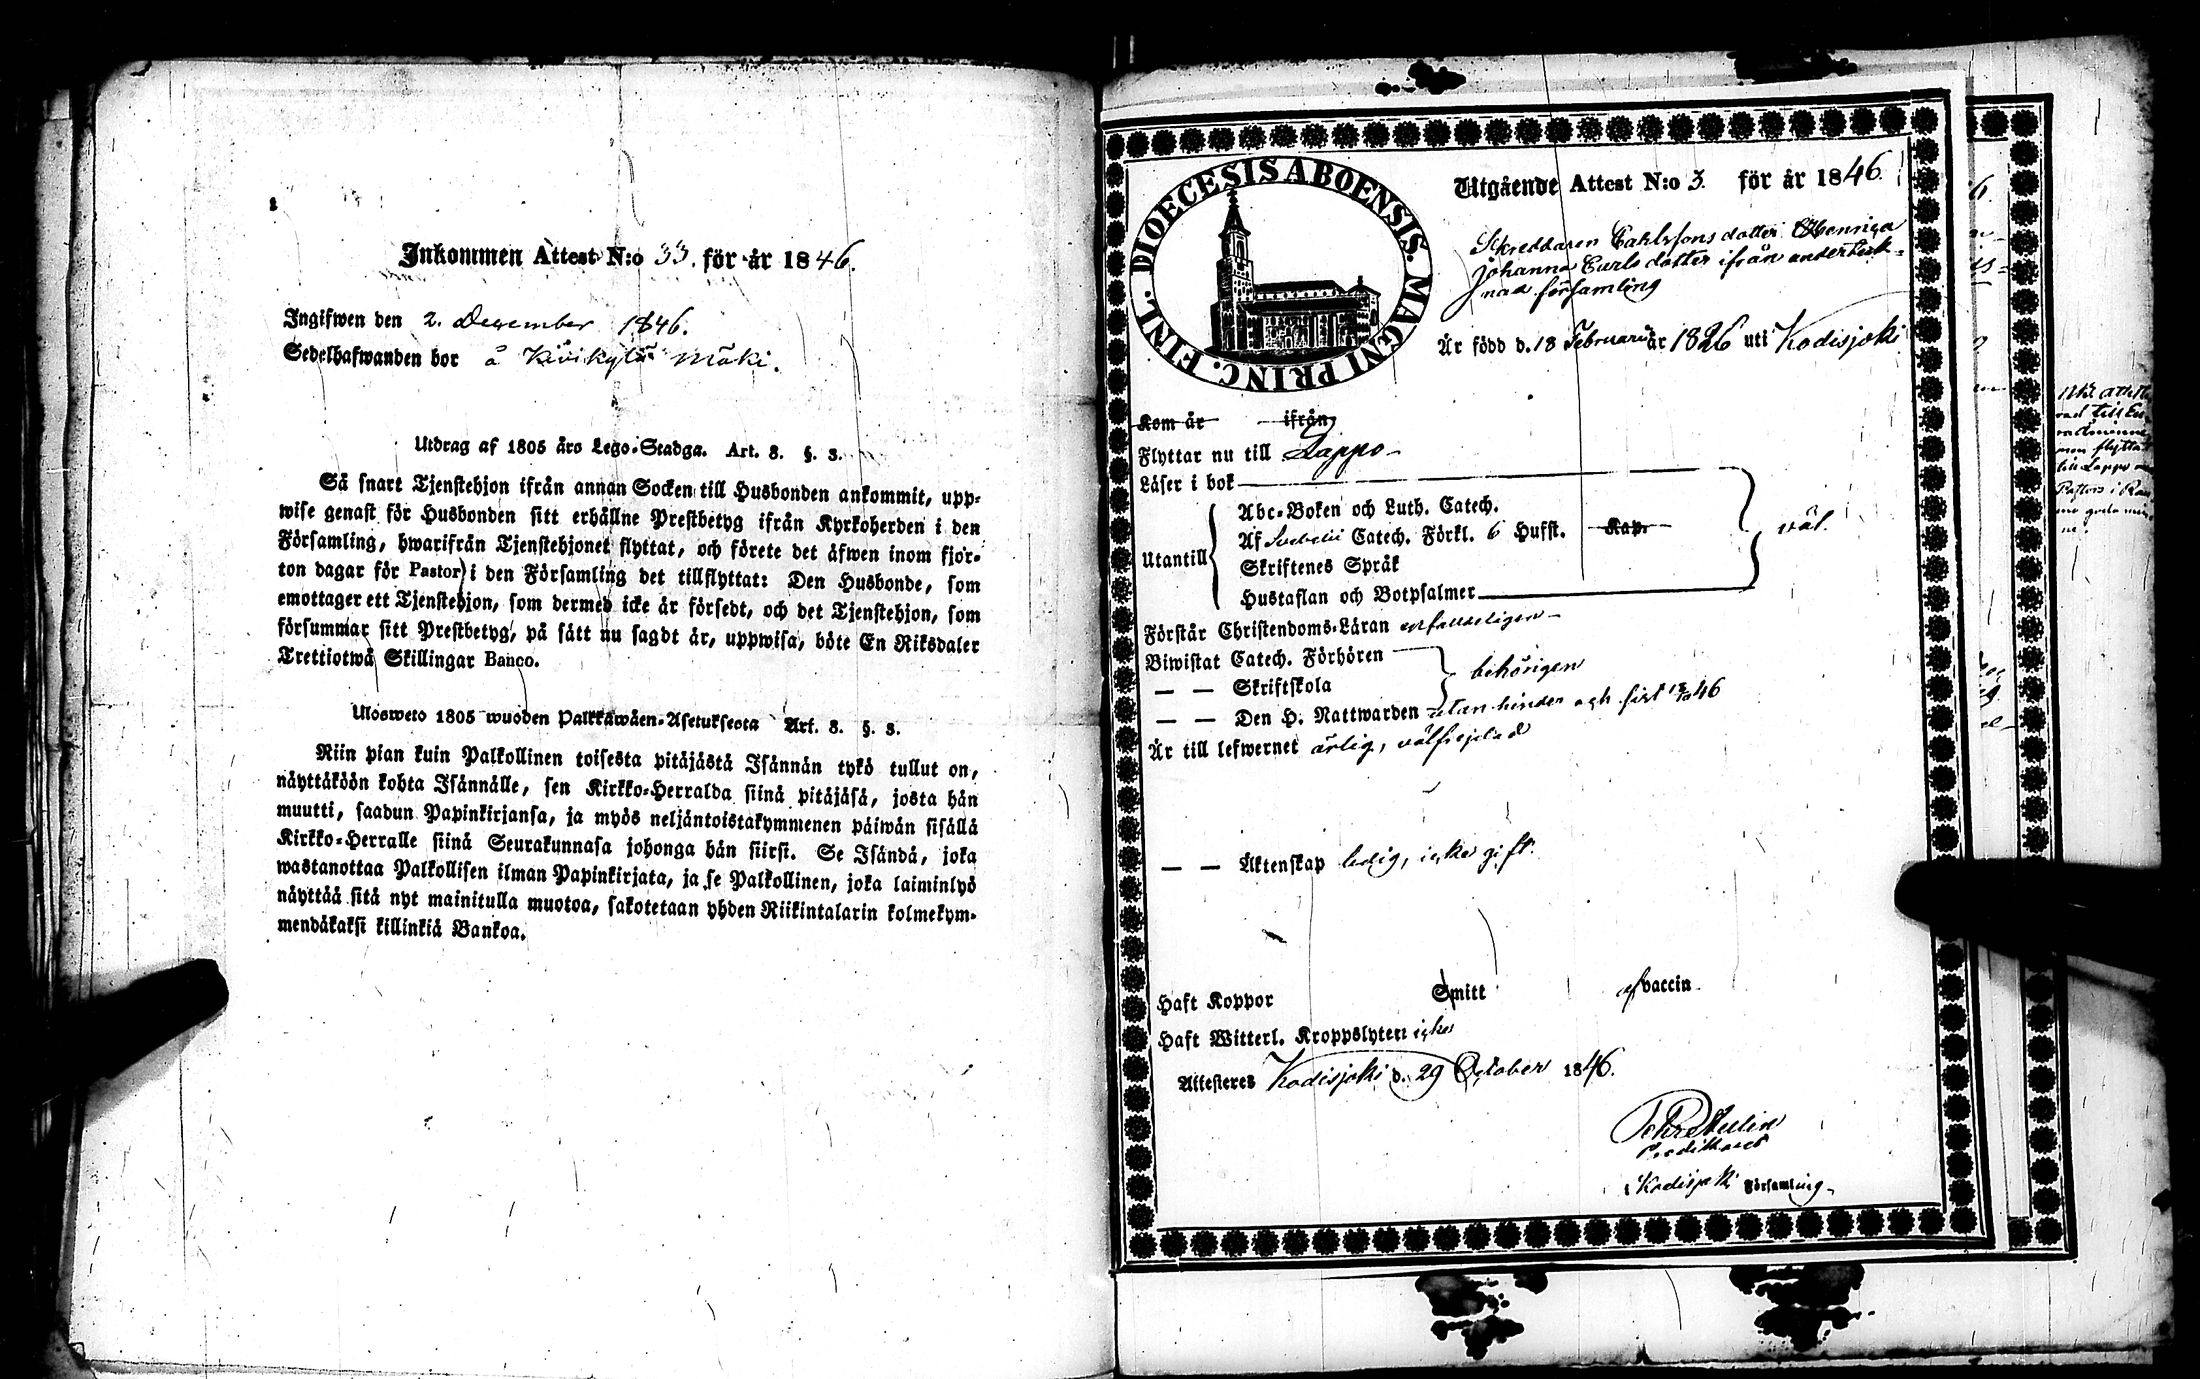 Inkommen Attest N:o 33. för år 1846.
Ingifwen den 2. December 1846.
Sedelhafwanden bor å Kivikylä Mäki.
Utdrag af 1805 års Lego-Stadga. Art. 8. §. 3.
Så snart Tjenstehjon ifrån annan Socken till Husbonden ankommit, upp-
wise genast för Husbonden sitt erhållne Prestbetyg ifrån Kyrkoherden i den
Församling, hwarifrån Tjenstehjonet flyttat, och förete det äfwen inom fjor-
ton dagar för Pastor i den Församling det tillflyttat: Den Husbonde, som
emottager ett Tjenstehjon, som dermed icke är försedt, och det Tjenstehjon, som
försummar sitt Prestbetyg, på sätt nu sagdt är, uppwisa, böte En Riksdaler
Trettiotwå Skillingar Banco.
Ulosweto 1805 wuoden Palkkawäen-Asetuksesta Art. 8. §. 3.
Niin pian kuin Palkollinen toisesta pitäjästä Isännän tykö tullut on,
näyttäköön kohta Isännälle, sen Kirkko-Herralda siinä pitäjäsä, josta hän
muutti, saadun Papinkirjansa, ja myös neljäntoistakymmenen päiwän sisällä
Kirkko-Herralle siinä Seurakunnasa johonga hän siirsi. Se Isändä, joka
wastanottaa Palkollisen ilman Papinkirjata, ja se Palkollinen, joka laiminlyö
näyttää sitä nyt mainitulla muotoa, sakotetaan yhden Riikintalarin kolmekym-
mendäkaksi killinkiä Bankoa.
DIOECESIS ABOENSIS. MAGNI PRINC. FINL.
Utgående Attest N:o 3. för år 1846.
Skreddaren Carlssons dotter
Johanna Carlsdotter ifrån underteck-
nad församling
Är född d. 18 Februari år 1826 uti Kodisjoki
Kom år ifrån
Flyttar nu till Lappo
Läser i bok
Abc-Boken och Luth. Catech.
Utantill Af Svebelii Catech. Förkl. 6 Hufst. Kap. väl.
Skriftenes Språk
Hustaflan och Botpsalmer
Förstår Christendoms-Läran
Biwistat Catech. Förhören
— — Skriftskola behörigen
— — Den H. Nattwarden utan hinder och sist 46
Är till lefwernet ärlig, välfrejdad
— — Äktenskap ledig, icke gift.
Haft Koppor Smitt af vaccin
Haft Witterl. Kroppslyten icke
Attesteres Kodisjoki d. 29 October 1846.
Predikant
i Kodisjoki Församling
till Lappo
Pastor i